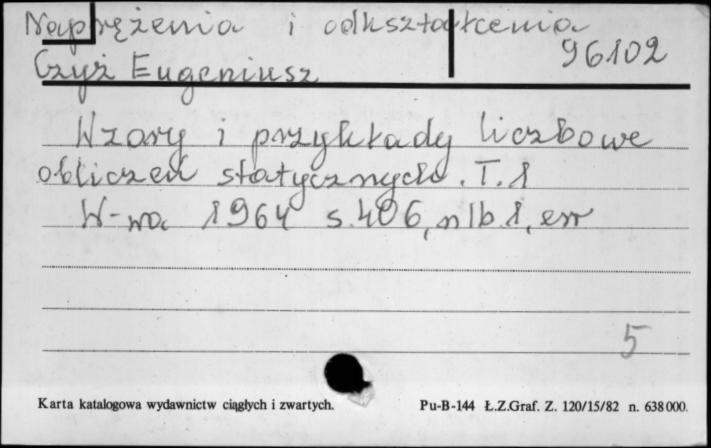 Naprężenia i odkształcenia
96102
Czyż Eugeniusz
Wzory i przykłady liczbowe
obliczeń statycznych. T.1
W-wa 1964 s.406, nlb.1, err
5
Karta katalogowa wydawnictw ciągłych i zwartych.
Pu-B-144 Ł.Z.Graf. Z. 120/15/82 n. 638000.